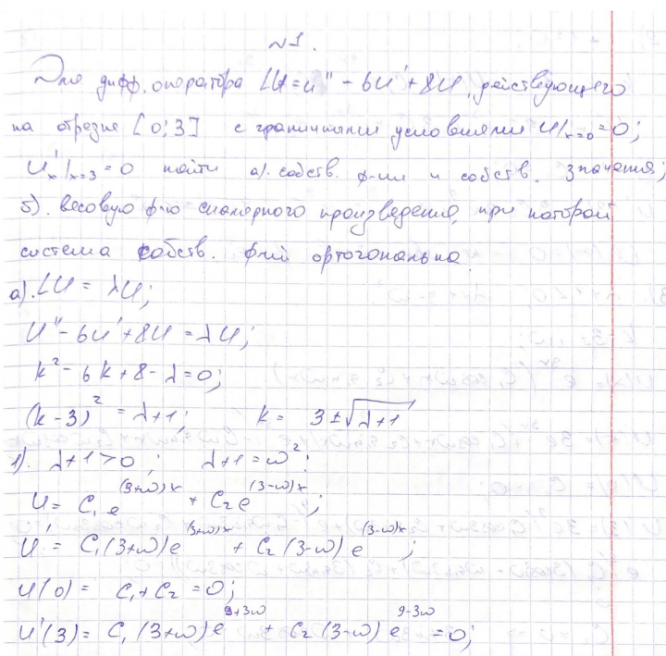 №1.
Для дифф. оператора LU=u''-6U'+8U, действующего
на отрезке [0;3] с граничными условиями U|ₓ₌₀=0;
U'ₓ|ₓ₌₃=0 найти а). собств. ф-ии и собств. значения;
б). весовую ф-ю скалярного произведения, при которой
система собств. ф-ий ортогональна.
а). LU = λU;
U''-6U'+8U=λU;
k²-6k+8-λ=0;
(k-3)²=λ+1; k= 3±√(λ+1)
1). λ+1>0; λ+1=ω²;
U= C₁e^(3+ω)x + C₂e^(3-ω)x;
U'= C₁(3+ω)e^(3+ω)x + C₂(3-ω)e^(3-ω)x;
U(0)= C₁+C₂=0;
U'(3)= C₁(3+ω)e^9+3ω + C₂(3-ω)e^9-3ω=0;